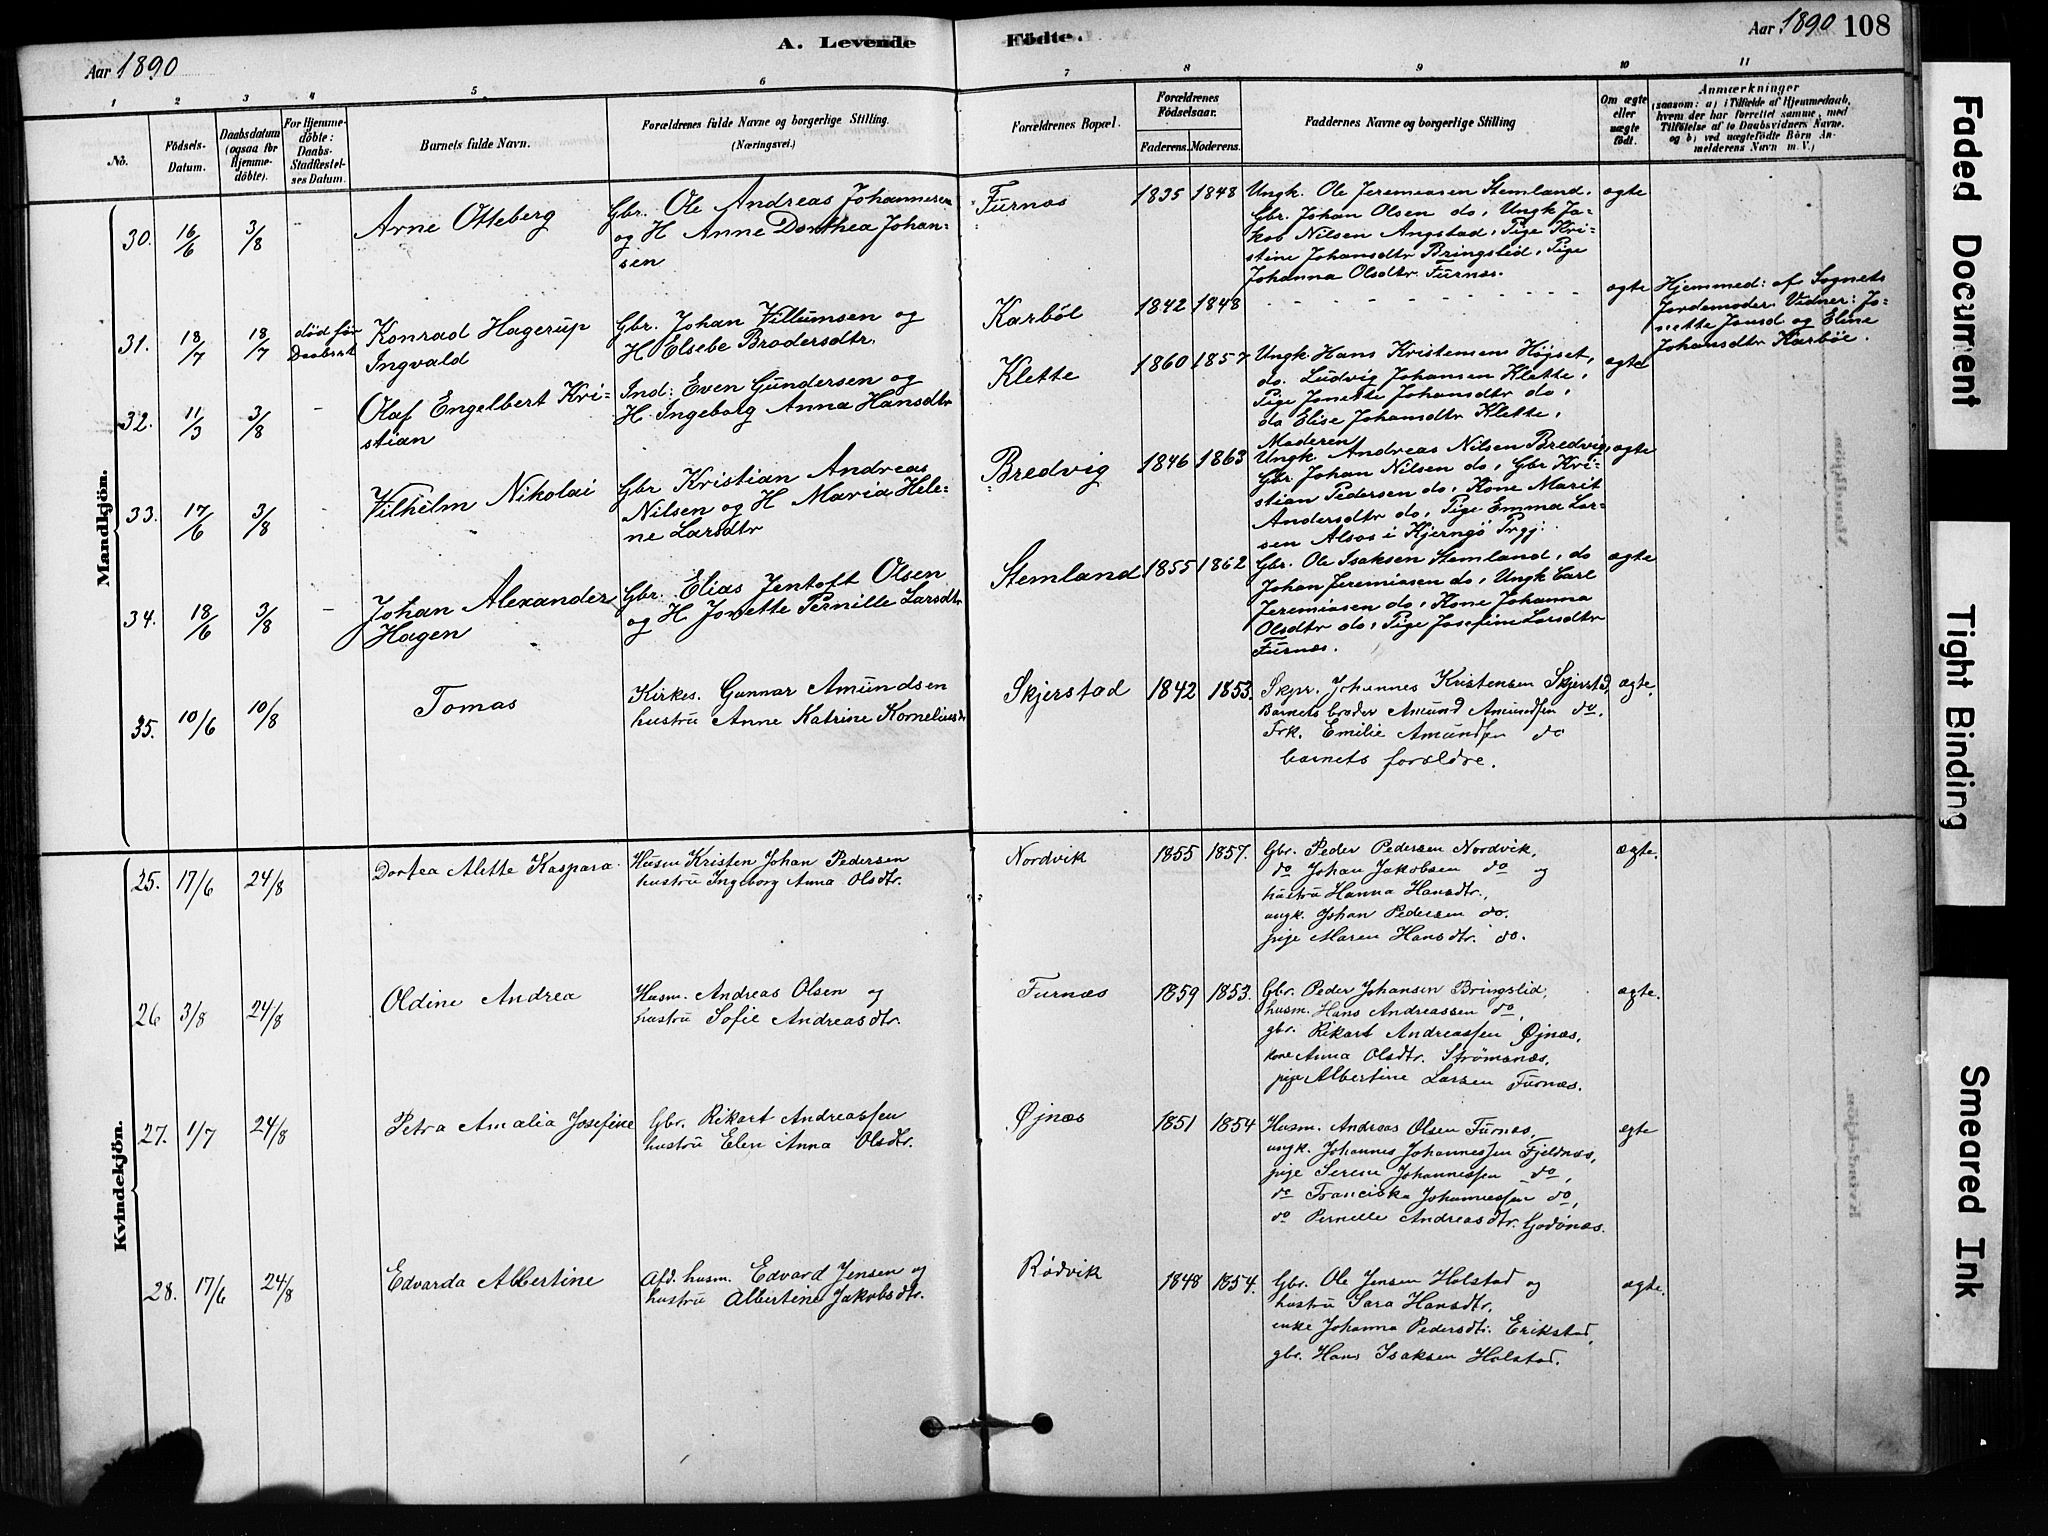 Aar 1890
A. Levende
Födte.
Aar 1890 108
1 2 3 4 5 6 7 8 9 10 11
No.
Födsels-
Datum.
Daabsdatum
(ogsaa for
Hjemme-
döbte).
For Hjemme-
döbte:
Daabs-
Stadfæstel-
ses Datum.
Barnets fulde Navn.
Forældrenes fulde Navne og borgerlige Stilling.
(Næringsvei.)
Forældrenes Bopæl.
Forældrenes
Födselsaar.
Faderens. Moderens.
Faddernes Navne og borgerlige Stilling
Om ægte
eller
uægte
födt.
Anmærkninger
(saasom: a) i Tilfælde af Hjemmedaab,
hvem der har forrettet samme, med
Tilföielse af to Daabsvidners Navne,
og b) ved uægtefödte Börn An-
melderens Navn m. V.)
Mandkjön.
30. 16/6 3/8 -
Arne Otteberg
Gbr. Ole Andreas Johannesen
og H Anne Dorthea Johan-
sen
Furnæs
1835 1848
Ungk. Ole Jeremiasen Stemland,
Gbr. Johan Olsen do, Ungk Ja-
kob Nilsen Angstad, Pige Kri-
stine Johansdtr Bringslid, Pige
Johanna Olsdtr. Furnæs.
ægte
31. 18/7 18/7 død før
Daabsst
Konrad Hagerup
Ingvald
Gbr. Johan Villumsen og
H Elsebe Brodersdtr.
Karbøl
1842 1848
- - - - - - - - -
ægte
Hjemmed: af Sognets
Jordemoder. Vidner: Jo-
nette Jonsd og Eline
Johansdtr Karbøl.
32. 11/3 3/8 -
Olaf Engelbert Kri-
stian
Ind: Even Gundersen og
H. Ingeborg Anna Hansdtr
Klette
1860 1857
Ungk Hans Kristensen Højset,
do. Ludvig Johansen Klette,
Pige Jonette Johansdtr do,
do Elise Johansdtr Klette,
Moderen
ægte
33. 17/6 3/8
Vilhelm Nikolai
Gbr Kristian Andreas
Nilsen og H Maria Hele-
ne Larsdtr
Bredvig
1846 1863
Ungk. Andreas Nilsen Bredvig,
Gbr Johan Nilsen do, Gbr Kri-
stian Pedersen do, Kone Marit
Andersdtr do, Pige Emma Lar-
sen Alsos i Kjerngö Prgj:
ægte
34. 18/6 3/8 -
Johan Alexander
Hagen
Gbr. Elias Jentoft Olsen
og H Jonette Pernille Larsdtr
Stemland
1855 1862
Gbr. Ole Isaksen Stemland, do
Johan Jeremiasen do, Ungk Carl
Jeremiasen do, Kone Johanna
Olsdtr do, Pige Josefine Larsdtr
Furnæs.
ægte
35. 10/6 10/8
Tomas
Kirkes. Gunnar Amundsen
hustru Anne Katrine Korneliusdr
Skjerstad
1842 1853.
Skpr. Johannes Kristensen Skjerstad,
Barnets broder Amund Amundsen do.
Frk. Emilie Amundsen do
barnets forældre.
ægte.
Kvindekjön.
25. 17/6 24/8
Dortea Alette Kaspara.
Husm Kristen Johan Pedersen
hustru Ingeborg Anna Olsdtr.
Nordvik
1855 1857.
Gbr. Peder Pedersen Nordvik,
do Johan Jakobsen do og
hustru Hanna Hansdtr.,
ungk. Johan Pedersen do.
pige Maren Hansdtr. do.
ægte.
26 3/8 24/8
Oldine Andrea
Husm. Andreas Olsen og
hustru Sofie Andreasdtr.
Furnæs
1859 1853.
Gbr. Peder Johansen Bringslid,
husm. Hans Andreassen do,
gbr. Rikart Andreassen Øjnæs,
kone Anna Olsdtr. Strømsnæs,
pige Albertine Larsen Furnæs.
ægte.
27. 1/7 24/8
Petra Amalia Josefine
Gbr. Rikart Andreassen
hustru Elen Anna Olsdtr.
Øjnæs
1851 1854
Husm. Andreas Olsen Furnæs,
ungk. Johannes Johannessen Fjeldnæs,
pige Serine Johannessen do,
do Franciska Johannessen do,
do Pernelle Andreasdtr. Godønæs.
ægte
28. 17/6 24/8
Edvarda Albertine
Afd. husm. Edvard Jensen og
hustru Albertine Jakobsdtr.
Rødvik
1848 1854.
Gbr. Ole Jensen Holstad og
hustru Sara Hansdtr,
enke Johanna Pedersdtr. Erikstad,
gbr. Hans Isaksen Holstad.
ægte.
Faded Document
Tight Binding
Smeared Ink